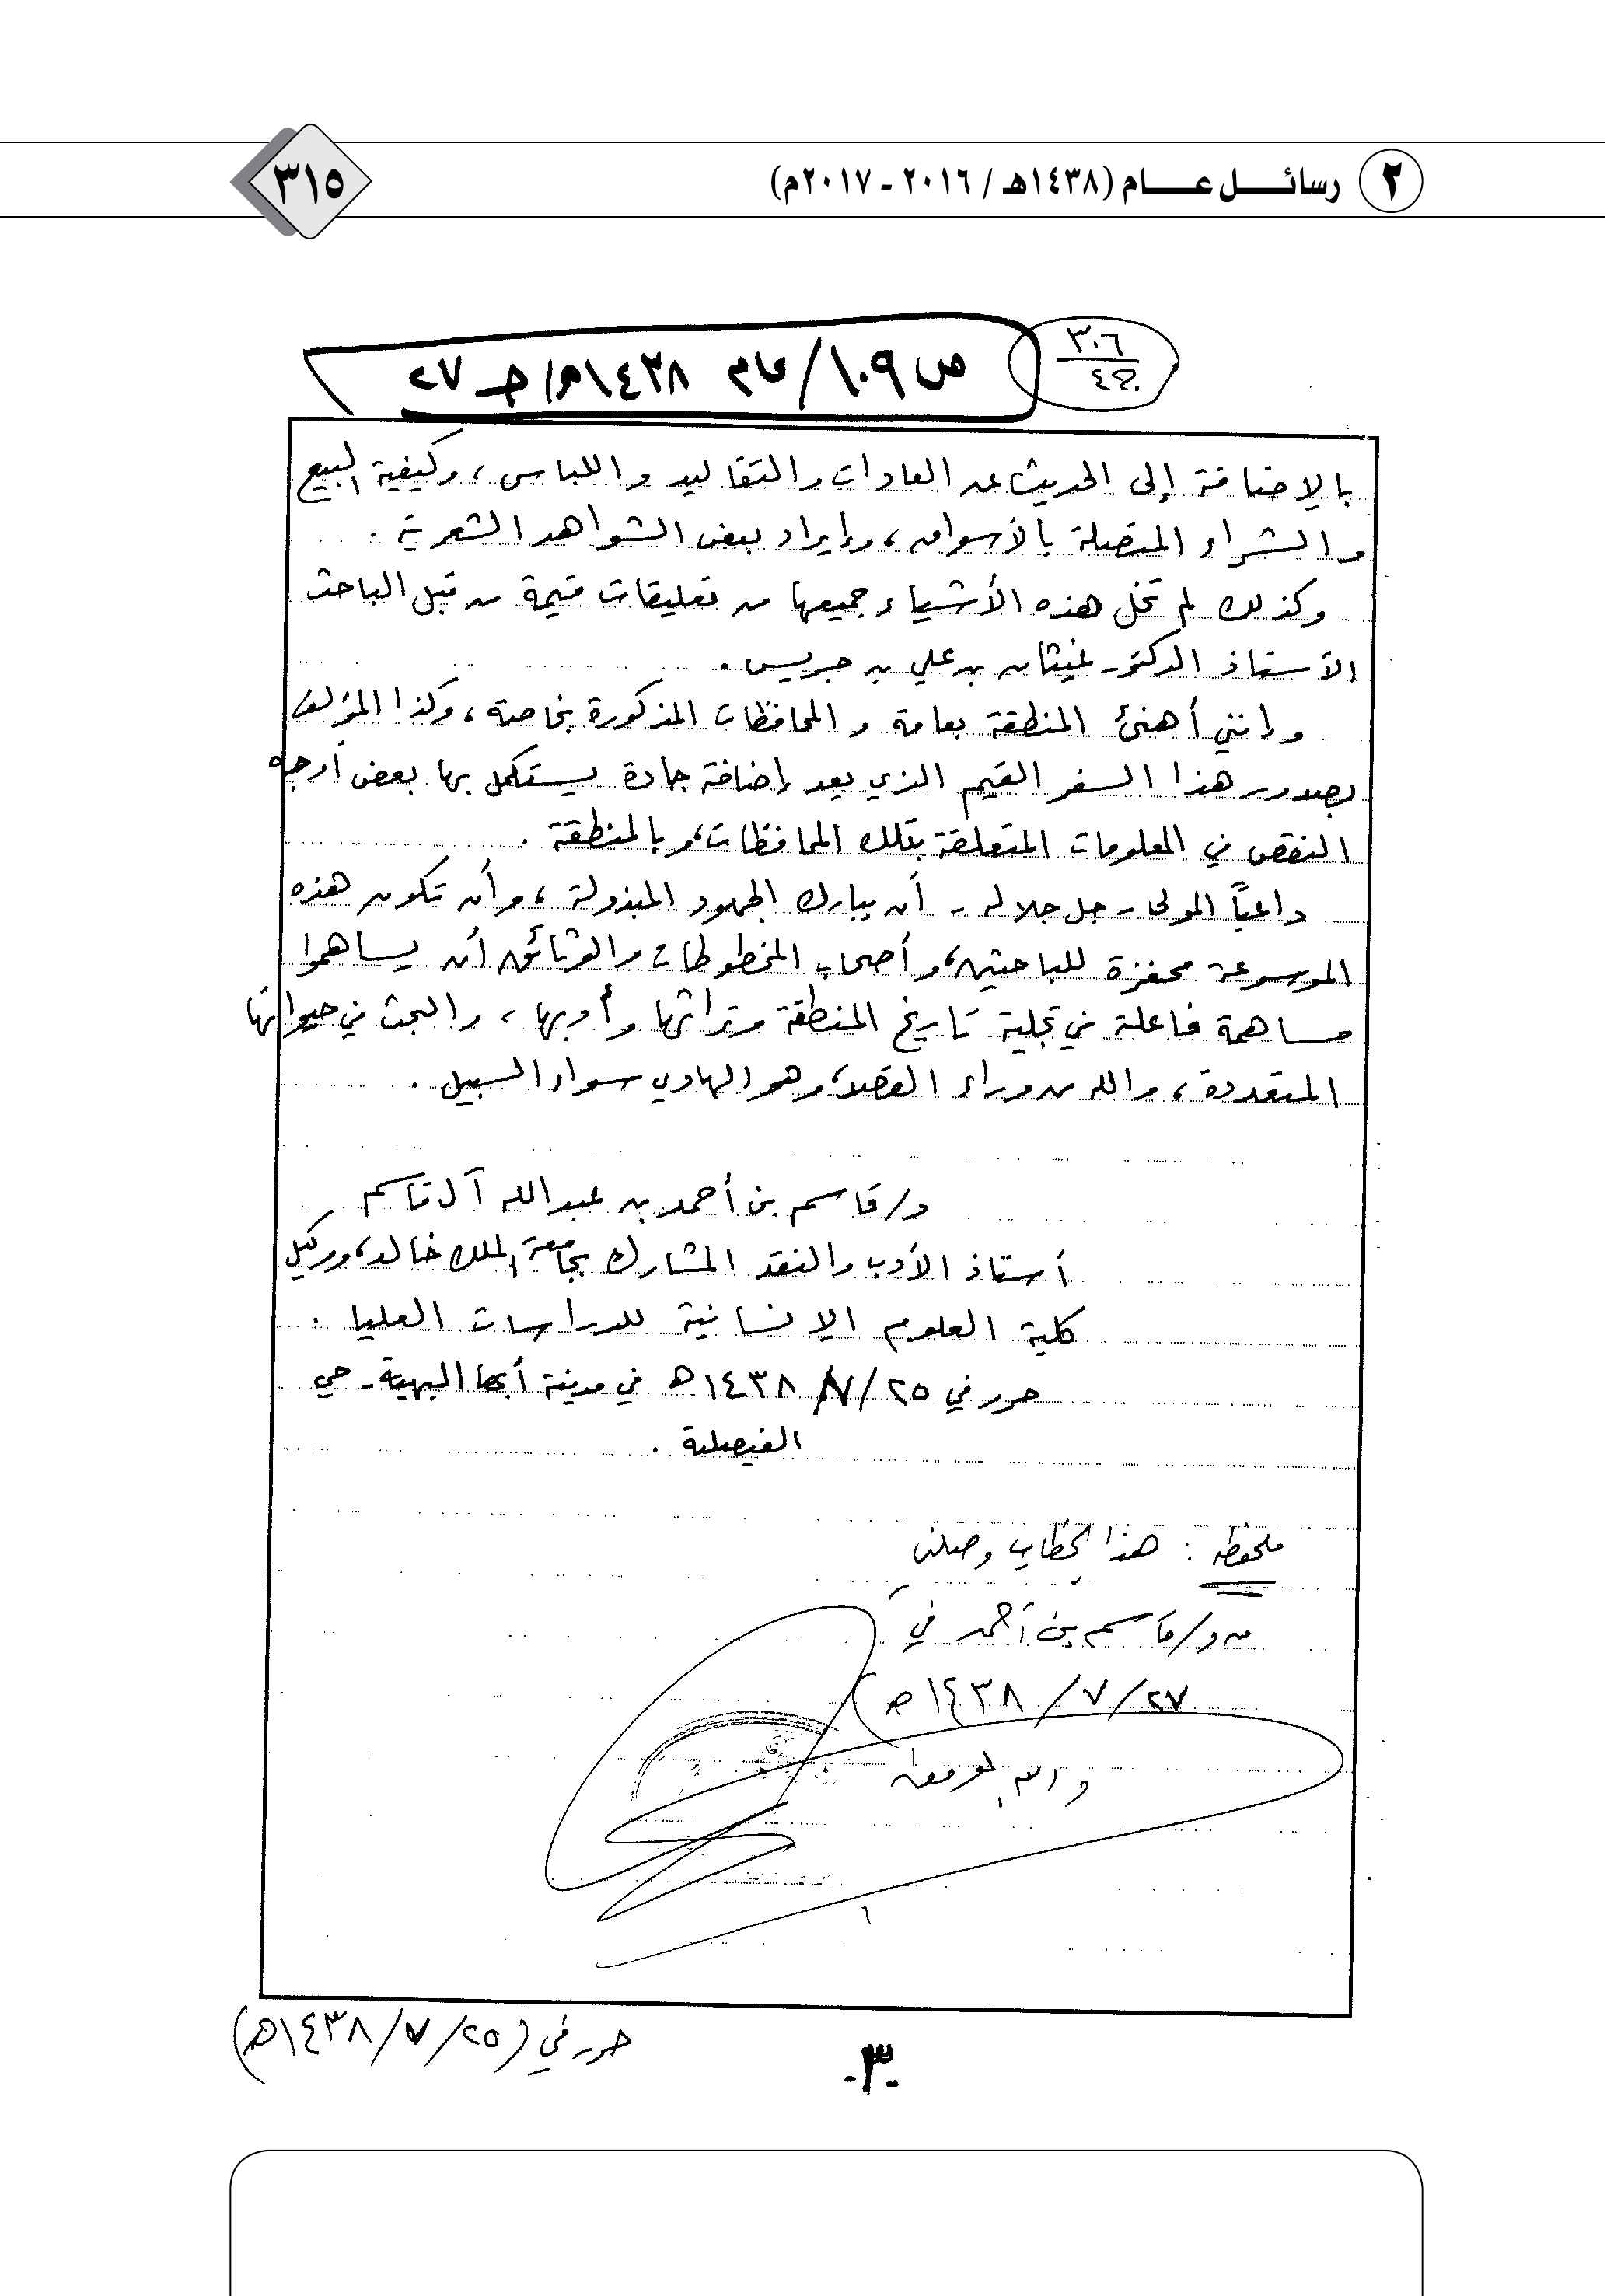 ٢ رسائل عام (١٤٣٨هـ / ٢٠١٦ - ٢٠١٧م)
٣١٥
٣٠٦
ص ١٠٩/ عام ١٤٣٨هـ/ جـ ٢٧
بالإضافة إلى الحديث عن العادات والتقاليد واللباس، وكيفية البيع
والشراء المتصلة بالأسواق، وإيراد بعض الشواهد الشعرية .
وكذلك لم تخل هذه الأشياء جميعها من تعليقات قيمة من قبل الباحث
الأستاذ الدكتور غيثان بن علي بن جريس .
وإنني أهنئ المنطقة بعامة والمحافظات المذكورة بخاصة، وكذا المؤلف
بصدور هذا السفر القيم الذي يعد إضافة جادة يستكمل بها بعض أوجه
النقص في المعلومات المتعلقة بتلك المحافظات، وبالمنطقة .
داعياً المولى - جل جلاله - أن يبارك الجهود المبذولة، وأن تكون هذه
الموسوعة محفزة للباحثين، وأصحاب المخطوطات والوثائق أن يساهموا
مساهمة فاعلة في تجلية تاريخ المنطقة وتراثها وأدبها، والبحث في جوانبها
المتعددة، والله من وراء القصد، وهو الهادي سواء السبيل .
د/ قاسم بن أحمد بن عبدالله آل قاسم
أستاذ الأدب والنقد المشارك بجامعة الملك خالد، ووكيل
كلية العلوم الإنسانية للدراسات العليا .
حرر في ٢٥/ ٧/ ١٤٣٨هـ في مدينة أبها البهية - حي
الفيصلية .
ملحوظة : هذا الخطاب وصلني
من د/ قاسم بن أحمد في
٢٧/ ٧/ ١٤٣٨هـ)
والله الموفق
٦
حرر في (٢٥/ ٧/ ١٤٣٨هـ)
-٣-